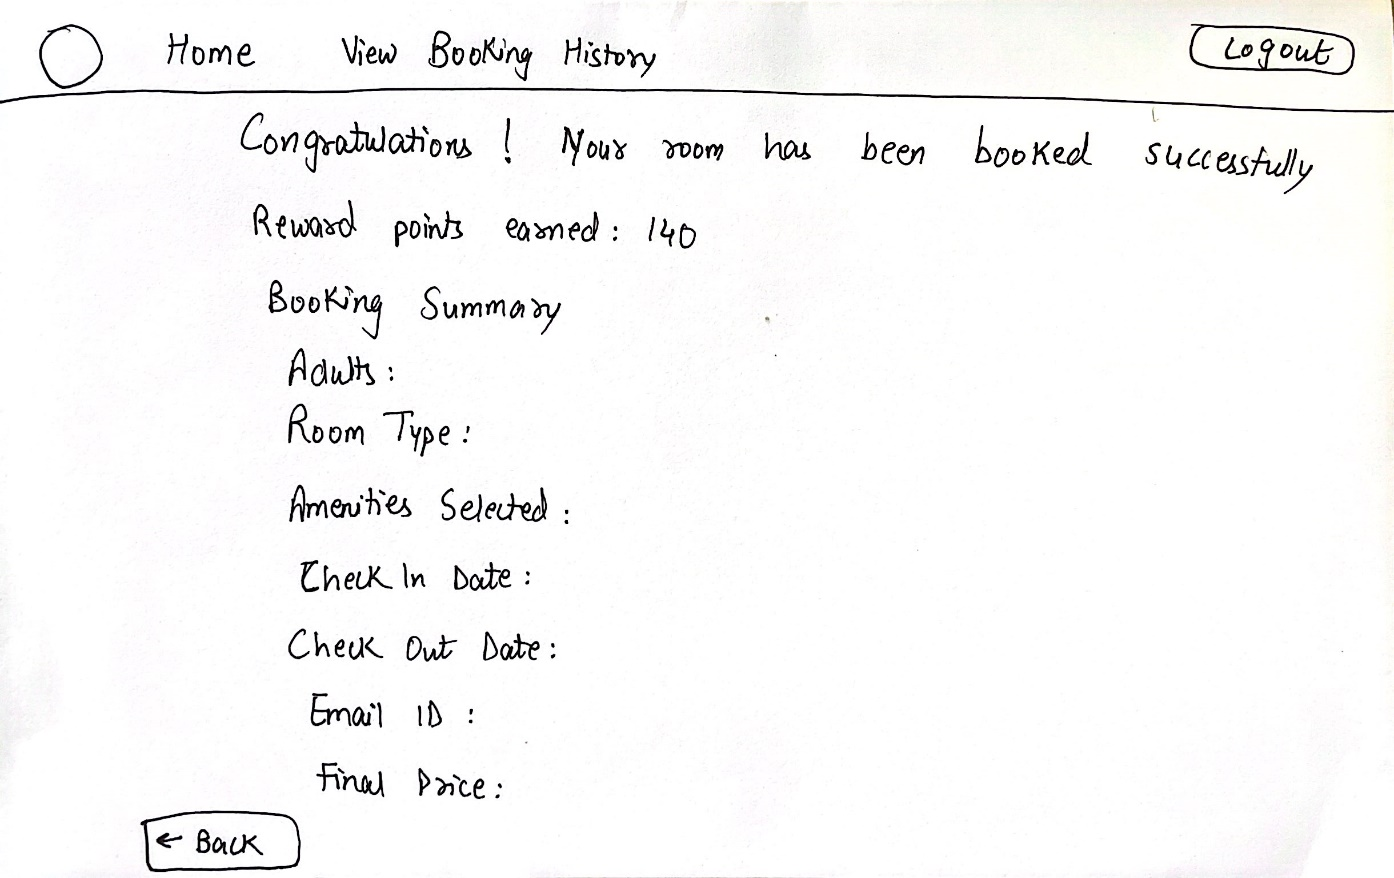 Home View Booking History Logout
Congratulations! Your room has been booked successfully
Reward points earned: 140
Booking Summary
Adults:
Room Type:
Amenities Selected:
Check In Date:
Check Out Date:
Email ID :
Final Price:
← Back